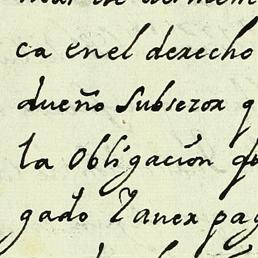 ca enel derecho
dueño Subcesor q
la obligacion q
gado Taner pag